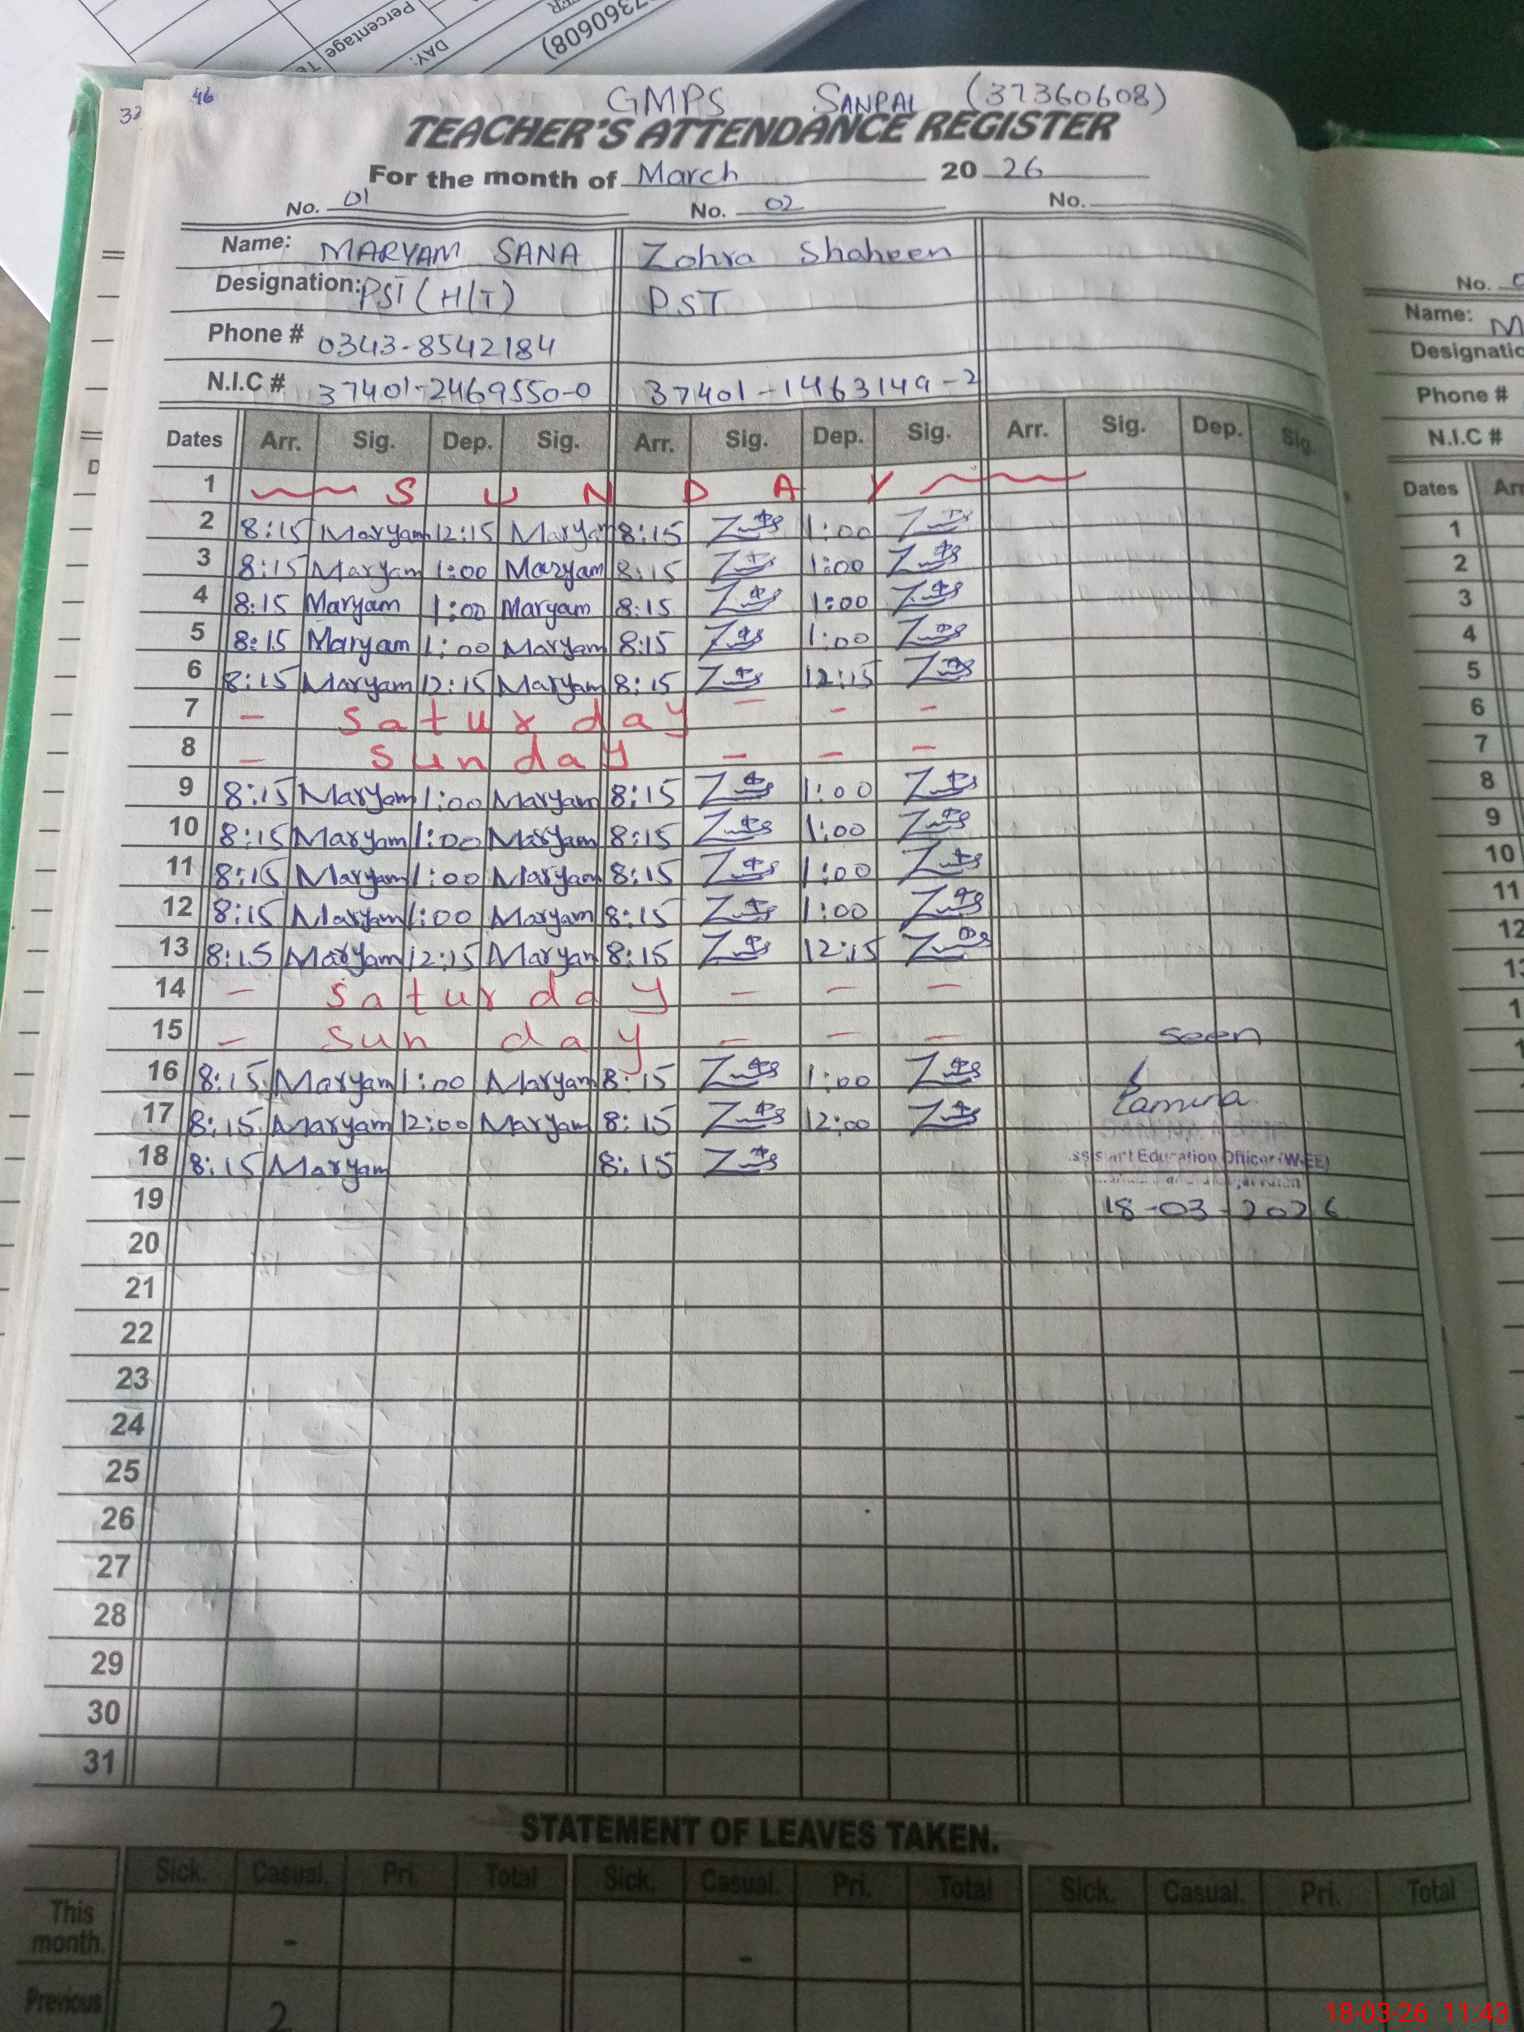 Percentage
DAY:
7360608)
32
46
GMPS SANPAL (37360608)
TEACHER'S ATTENDANCE REGISTER
For the month of March 2026
No. 01 No. 02 No.
Name: MARYAM SANA Zohra Shaheen
Designation: PST (H/T) PST
Phone # 0343-8542184
N.I.C # 37401-2469550-0 37401-1463149-2
Dates Arr. Sig. Dep. Sig. Arr. Sig. Dep. Sig. Arr. Sig. Dep. Sig.
1 S U N D A Y
2 8:15 Maryam 12:15 Maryam 8:15 1:00
3 8:15 Maryam 1:00 Maryam 8:15 1:00
4 8:15 Maryam 1:00 Maryam 8:15 1:00
5 8:15 Maryam 1:00 Maryam 8:15 1:00
6 8:15 Maryam 12:15 Maryam 8:15 12:15
7 - saturday - - -
8 - sunday - - -
9 8:15 Maryam 1:00 Maryam 8:15 1:00
10 8:15 Maryam 1:00 Maryam 8:15 1:00
11 8:15 Maryam 1:00 Maryam 8:15 1:00
12 8:15 Maryam 1:00 Maryam 8:15 1:00
13 8:15 Maryam 12:15 Maryam 8:15 12:15
14 - saturday - - -
15 - sunday - - -
seen
16 8:15 Maryam 1:00 Maryam 8:15 1:00
17 8:15 Maryam 12:00 Maryam 8:15 12:00
18 8:15 Maryam 8:15
ssistant Education Officer (W-EE)
19 18-03-2026
20
21
22
23
24
25
26
27
28
29
30
31
STATEMENT OF LEAVES TAKEN.
Sick. Casual. Pri. Total Sick. Casual. Pri. Total Sick. Casual. Pri. Total
This month. - -
Previous 2
No.
Name: M
Designatio
Phone #
N.I.C #
Dates Arr
1
2
3
4
5
6
7
8
9
10
11
12
18-03-26 11:43